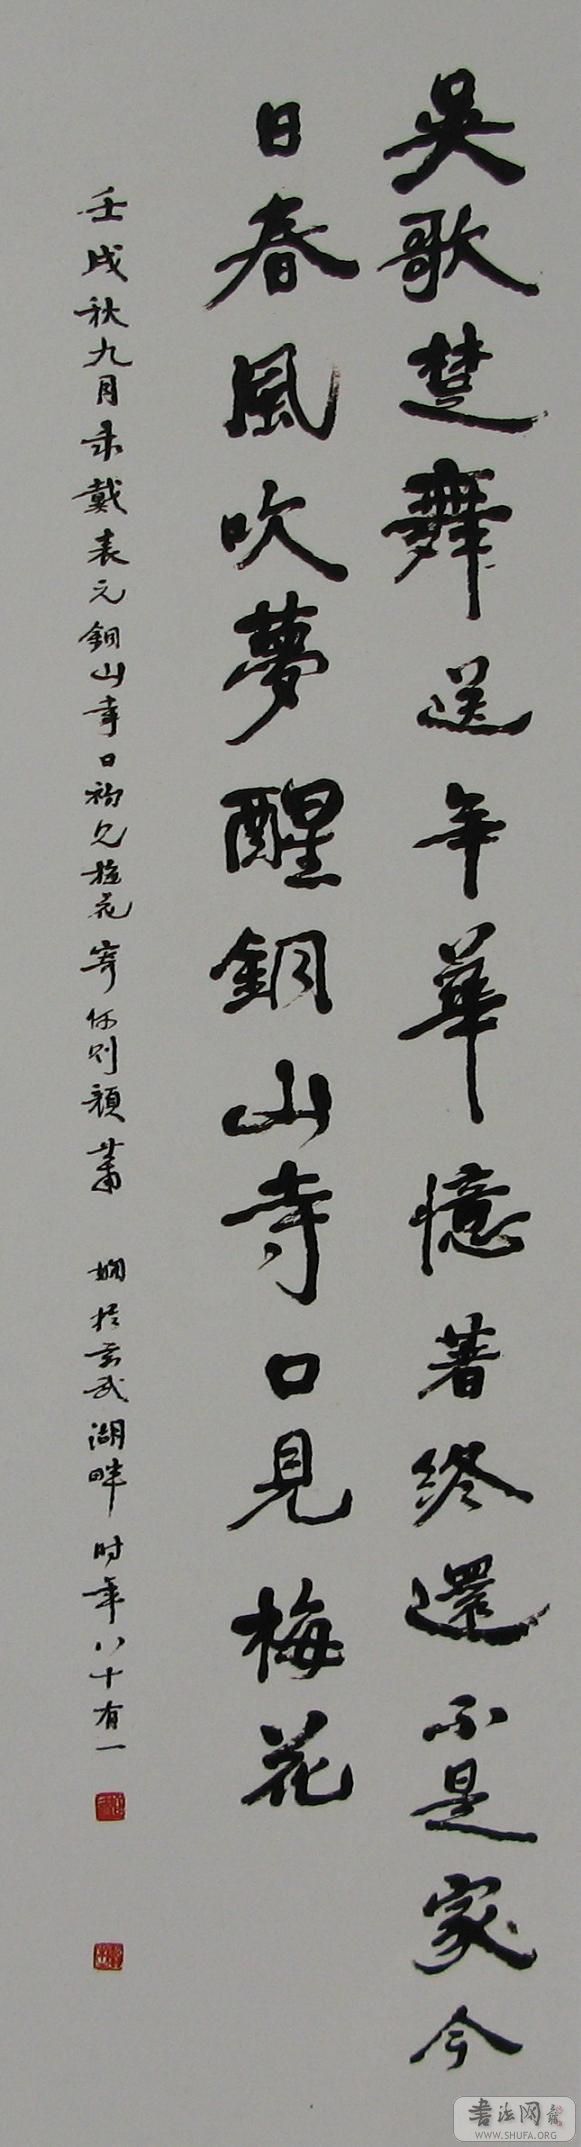 吳歌楚舞送年華憶著終還不是家今
日春風吹夢醒銅山寺口見梅花
壬戌秋九月录戴表元銅山寺口初見梅花寄何劉顏蕭 嫻於玄武湖畔时年八十有一
書法网
WWW.SHUFA.ORG